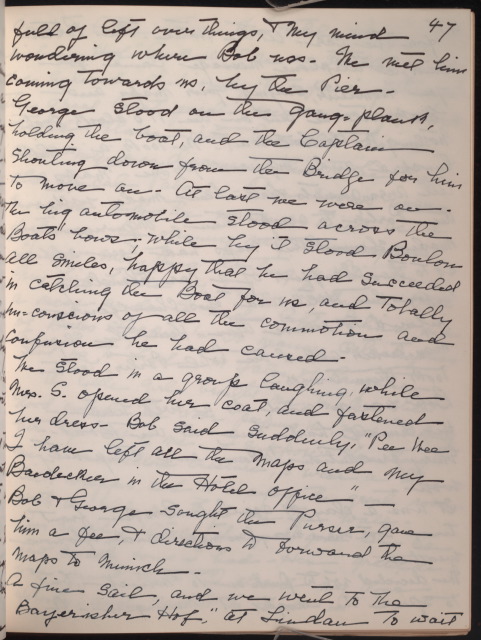 47
full of left over things, & my mind
wondering where Bob was. We met him
coming towards us, by the Pier -
George stood on the gang-plank,
holding the boat, and the Captain
shouting down from the Bridge for him
to move on - At last we were on -
The big automobile stood across the
Boats bows, while by it stood Boulon
all smiles, happy that he had succeeded
in catching the Boat for us, and totally
un-conscious of all the commotion and
confusion he had caused -
We stood in a group laughing, while
Mrs. S. opened her coat, and fastened
her dress - Bob said suddenly, "Pee Wee
I have left all the maps and my
Baedecker in the Hotel office" -
Bob & George sought the Purser, gave
him a fee, & directions to forward the
maps to Munich -
A fine sail, and we went to the
Bayerisher Hof," at Lindau to wait